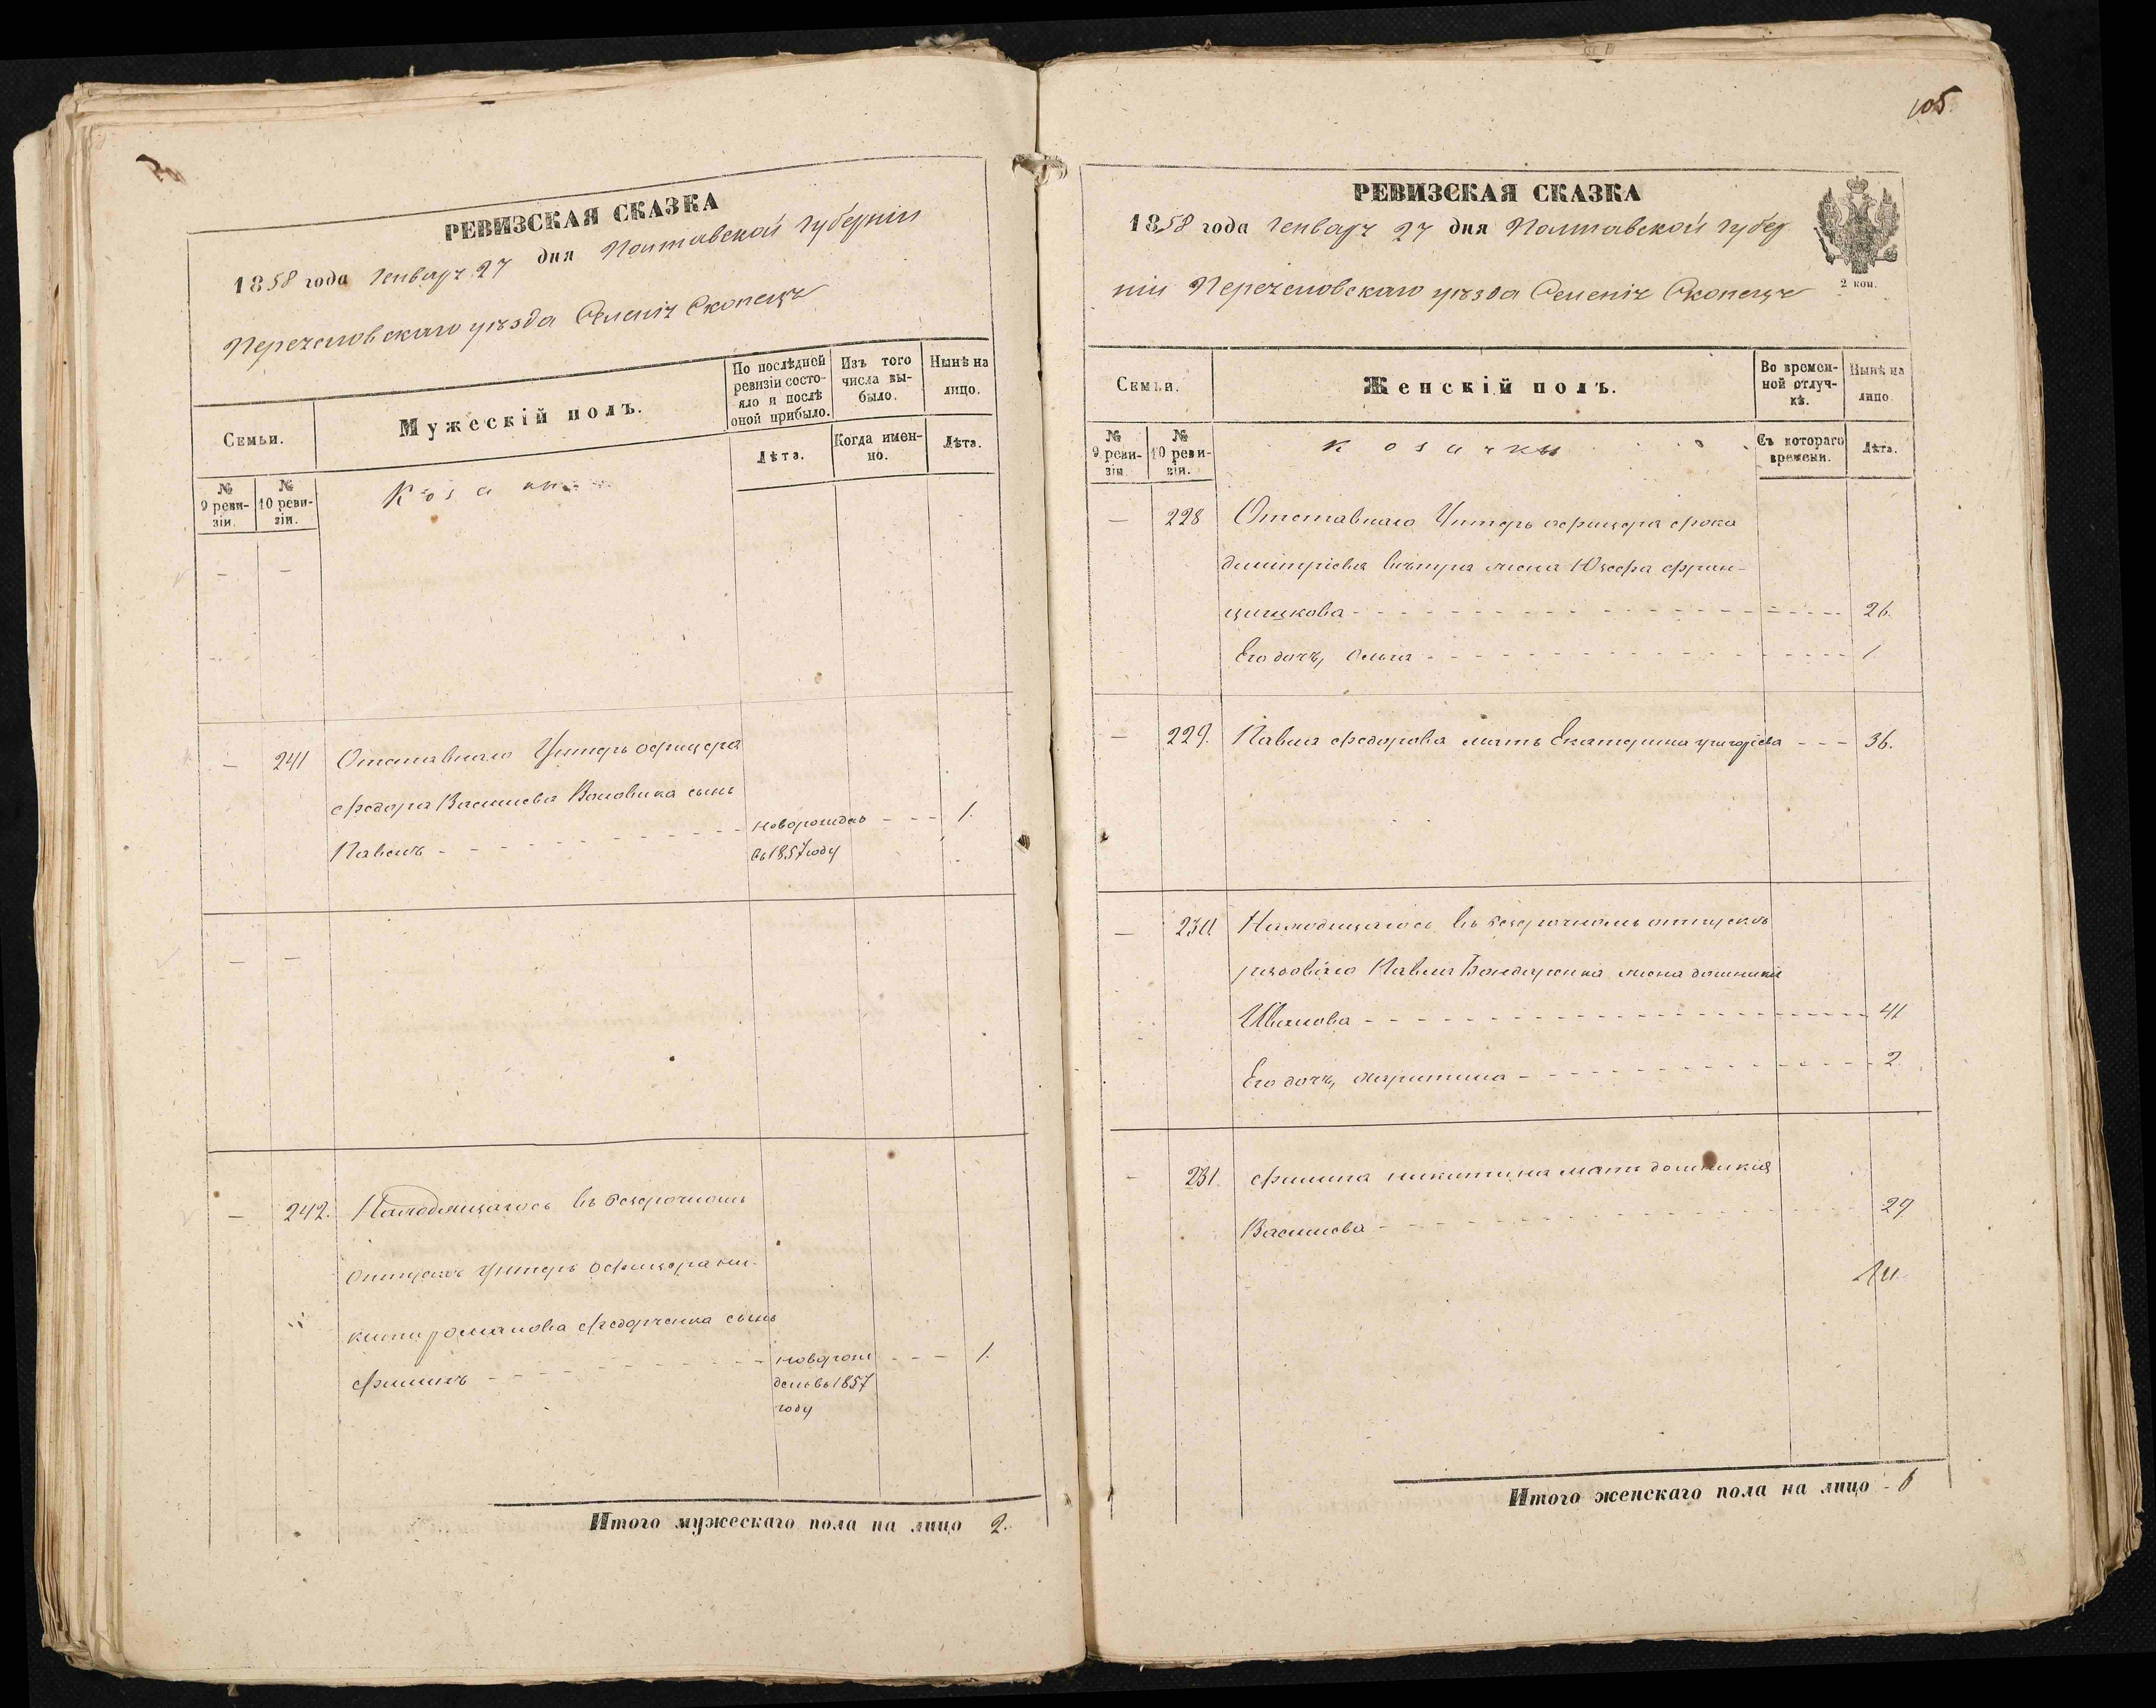 РЕВИЗСКАЯ СКАЗКА
1858 года Генваря 27 дня Полтавской Губерніи
Переяславскаго уѣзда Селенія Скопецъ
Семьи.
Мужескій полъ.
По послѣдней ревизіи состояло и послѣ оной прибыло.
Изъ того числа выбыло.
Нынѣ на лицо.
№ 9 ревизіи.
№ 10 ревизіи.
Козаки
Лѣта.
Когда именно.
Лѣта.
— —
— 241 Отставнаго Унтеръ офицера
Федора Васильева Воловика сынъ
Павелъ новорожденъ 1.
въ 1857 году
— —
— 242. Находящагося въ безсрочномъ
отпускѣ Унтеръ офицера Ни-
киты Романова Федорченка сынъ
Филипъ новорож 1.
денъ въ 1857
году
Итого мужескаго пола на лицо 2.
105.
РЕВИЗСКАЯ СКАЗКА
1858 года Генваря 27 дня Полтавской Губер
ніи Переяславскаго уѣзда Селенія Скопецъ
2 коп.
Семьи.
Женскій полъ.
Во временной отлучкѣ.
Нынѣ на лицо.
№ 9 ревизіи.
№ 10 ревизіи.
Козачки
Съ котораго времени.
Лѣта.
— 228 Отставнаго Унтеръ офицера
Димитріева жена Юзефа Фран-
цишкова 26.
Его дочь, Ольга 1
— 229. Павла Федорова мать Екатерина Григорьева 36.
— 230 Находящагося въ безсрочномъ отпускѣ
рядоваго Павла Бондаренка жена Домникія
Иванова 41
Его дочь, Харитина 2.
— 231. Филипа Никитина мать Домникія
Васильева 29
Итого женскаго пола на лицо 6